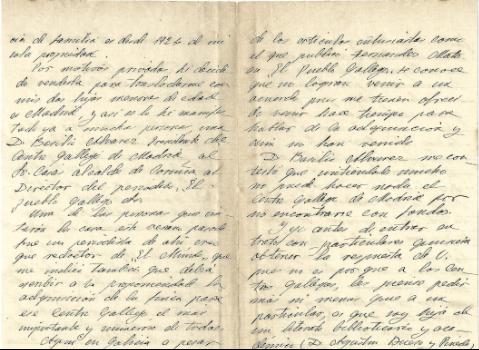 cia de familia es desde 1926 de mi
sola propiedad.
Por motivos privados he decidido
de venderla para trasladarme con
mis dos hijas menores de edad
a Madrid, y así se lo he manifes
tado ya a muchas personas, una
D. Basilio Alvarez Presidente del
Centro Gallego de Madrid, al
Sr. Casas alcalde de Coruña al
Director del periodico, El
pueblo Gallego etc.
Una de las personas que
la casa, este verano pasado
fue un periodista de ahí creo
que redactor de El Mundo, que
me indicó tambien que debía
escribir a la
adquisicion de la finca para
ese Centro Gallego el mas
importante y numeroso de todos.
Aqui en Galicia a pesar
de los articulos como
el que publicó Fernandez Mato
en El Pueblo Gallego, se conoce
que no logran venir a un
acuerdo pues me tienen ofreci
de venir hace tiempo para
hablar de la adquisicion y
aun no han venido.
D. Basilio Alvarez me con
testo que sintiendolo mucho
no puede hacer nada el
Centro Gallego de Madrid por
no encontrarse con fondos.
Y yo antes de entrar en
trato con particulares
obtener la respuesta de V.
pues no es por que a los Cen
tros gallegos, les pienso pedir
mas ni menos que a un
particular, es que soy hija de
un literato bibliotecario y aca
démico (D.